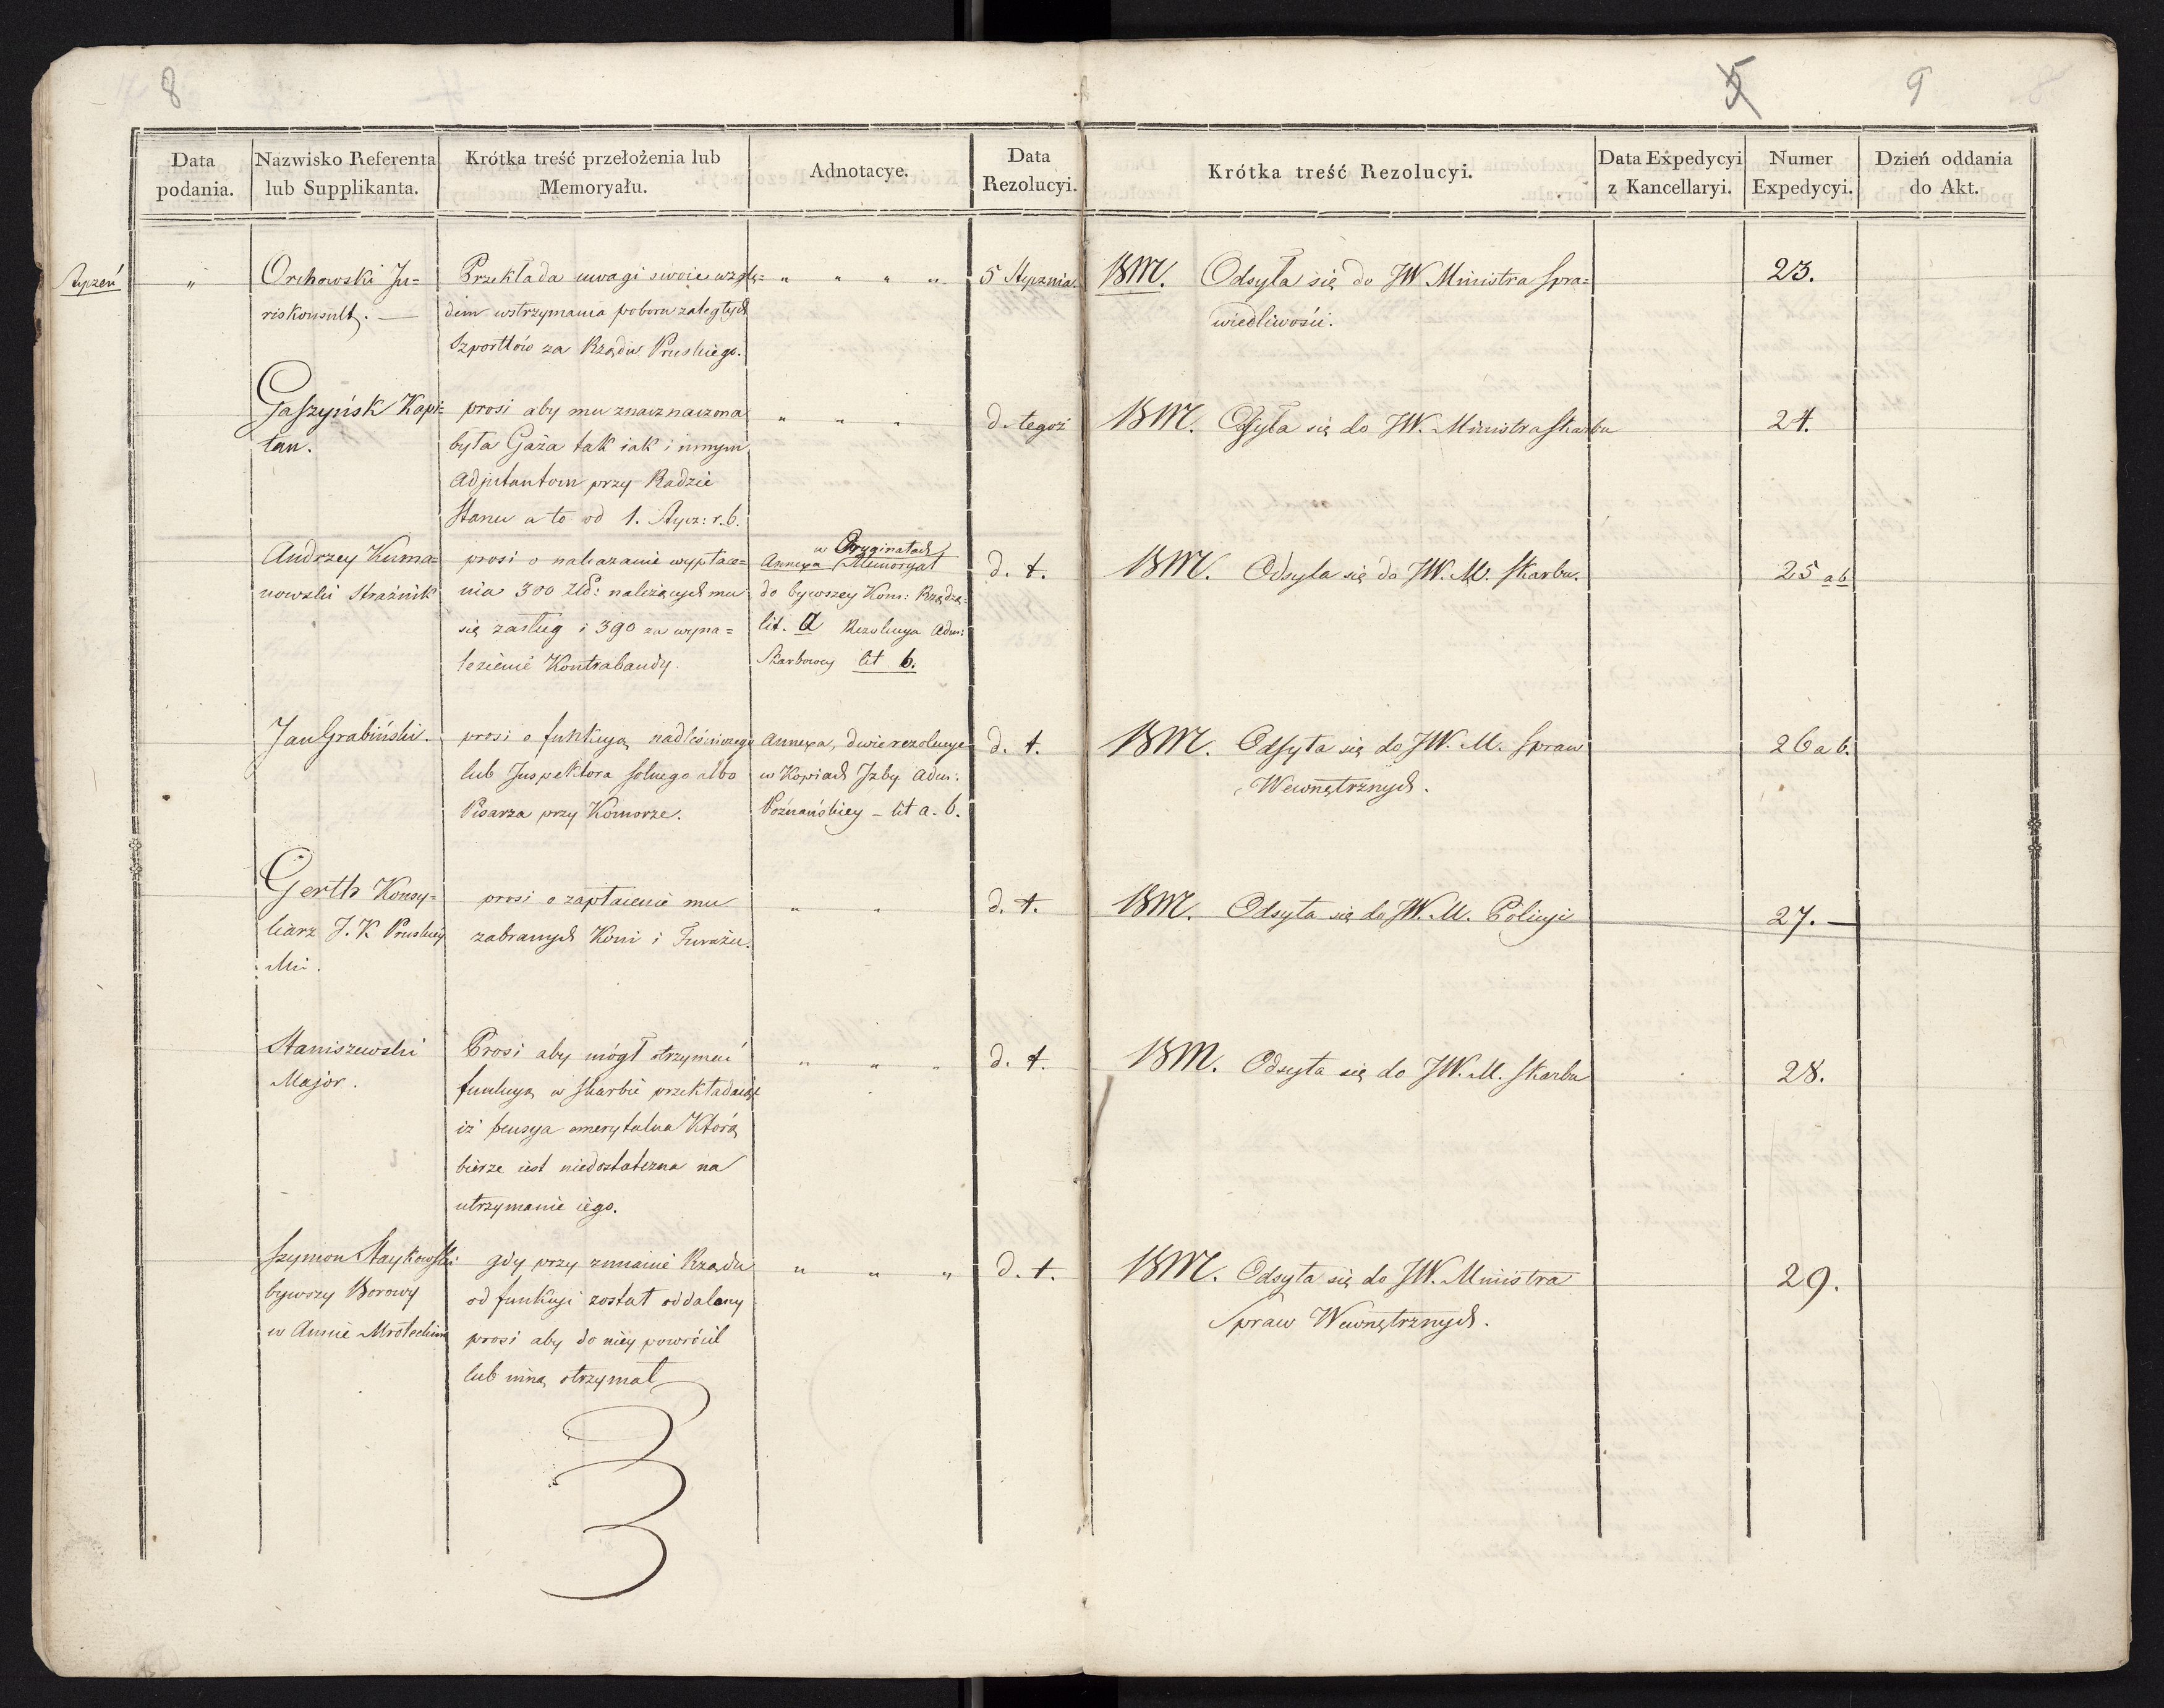 8
5 9
Data podania. Nazwisko Referenta lub Supplikanta. Krótka treść przełożenia lub Memoryału. Adnotacye. Data Rezolucyi. Krótka treść Rezolucyi. Data Expedycyi z Kancellaryi. Numer Expedycyi. Dzień oddania do Akt.
Styczeń
"
Orchowski Ju=
riskonsult. —
Przekłada uwagi swoie wzglę=
dem wstrzymania poboru zaległych
Szportlów za Rządu Pruskiego.
" " " "
5 Stycznia.
BM. Odsyła się do JW Ministra Spra=
wiedliwości.
23.
Gaszyńsk Kapi=
tan.
prosi aby mu znaznaczona
była Gaża tak iak i innym
Adjutantom przy Radzie
Stanu a to od 1. Stycz: r. b.
" " "
d. tegoż
BM. Odsyła się do JW. Ministra Skarbu
24.
Andrzey Kuma=
nowski Strażnik
prosi o nakazanie wypłace=
nia 300 Złł: należących mu
się zasług i 390 za wyna=
lezienie Kontrabandy.
w Oryginałach
Annexa Memoryał
do bywszey Kom: Rządzą:
lit. a Rezolucya Adm:
Skarbowey lit b.
d. t.
BM. Odsyła się do JW. M. Skarbu.
25 ab
Jan Grabiński.
prosi o funkcyą nadleśniczego
lub Inspektora solnego albo
Pisarza przy Komorze.
Annexa, dwie rezolucye
w Kopiach Izby Adm:
Poznańskiey – lit a. b.
d. t.
BM. Odsyła się do JW. M. Spraw
Wewnętrznych.
26 a b.
Gerth Konsy=
liarz J. K Pruskiey
Mci.
prosi o zapłacenie mu
zabranych Koni i Furażu.
" "
d. t.
BM. Odsyła się do JW. M. Policyi
27. —
Staniszewski
Major.
Prosi aby mógł otrzymać
funkcyą w skarbie przekładaiąc
iż pensya emerytalna Którą
bierze iest niedostateczna na
utrzymanie iego.
" " "
d. t.
BM. Odsyła się do JW. M. Skarbu
28.
Szymon Staykowski
bywszy Borowy
w Amcie Mrotechim
gdy przy zmianie Rządu
od funkcyi został oddalony
prosi aby do niéy powrócił
lub inną otrzymał
" " "
d. t.
BM. Odsyła się do JW. Ministra
Spraw Wewnętrznych.
29.